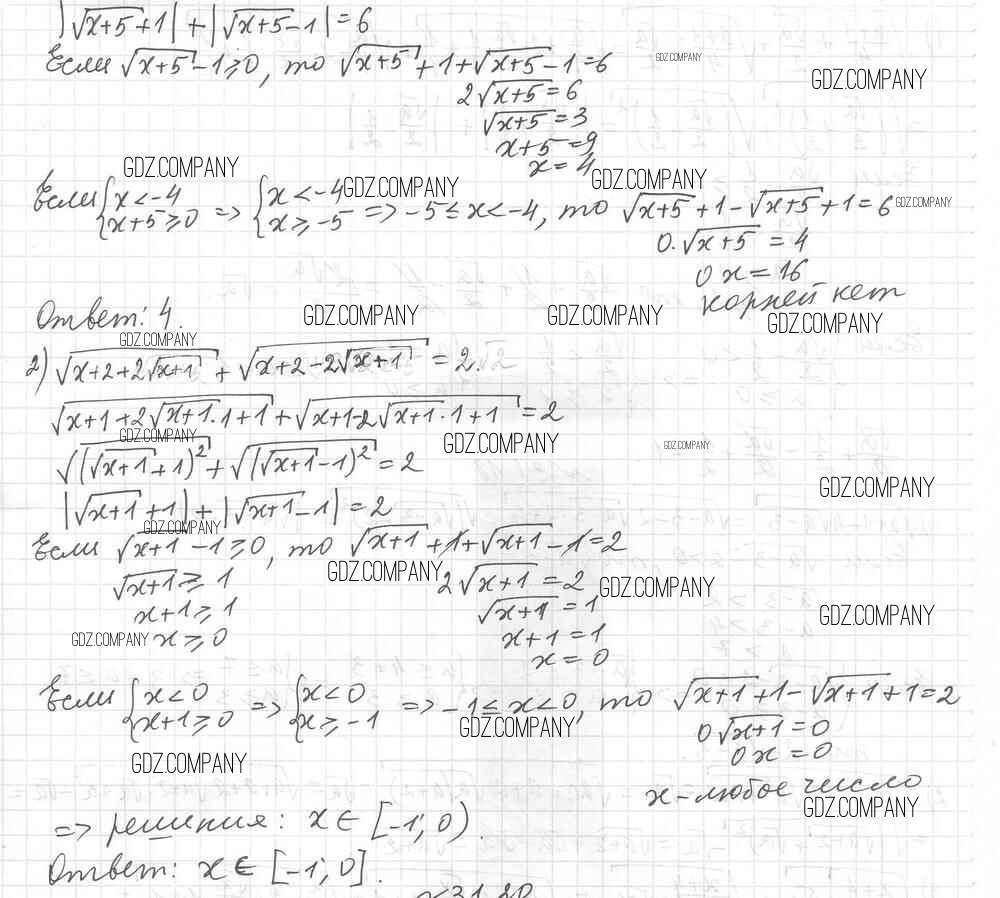 |√(x+5)+1| + |√(x+5)-1| = 6
Если √(x+5) - 1 ≥ 0, то √(x+5) + 1 + √(x+5) - 1 = 6
GDZ.COMPANY
GDZ.COMPANY
2√(x+5) = 6
√(x+5) = 3
x+5 = 9
x = 4
GDZ.COMPANY
GDZ.COMPANY
GDZ.COMPANY
Если {x < -4, x+5 ≥ 0 => {x < -4, x ≥ -5 => -5 ≤ x < -4, то √(x+5) + 1 - √(x+5) + 1 = 6
GDZ.COMPANY
0·√(x+5) = 4
0x = 16
корней нет
Ответ: 4.
GDZ.COMPANY
GDZ.COMPANY
GDZ.COMPANY
GDZ.COMPANY
2) √(x+2+2√(x+1)) + √(x+2-2√(x+1)) = 2.
√(x+1+2√(x+1)·1+1) + √(x+1-2√(x+1)·1+1) = 2
GDZ.COMPANY
GDZ.COMPANY
GDZ.COMPANY
√((√(x+1)+1)²) + √((√(x+1)-1)²) = 2
GDZ.COMPANY
|√(x+1)+1| + |√(x+1)-1| = 2
GDZ.COMPANY
Если √(x+1) - 1 ≥ 0, то √(x+1) + 1 + √(x+1) - 1 = 2
GDZ.COMPANY
GDZ.COMPANY
√(x+1) ≥ 1
2√(x+1) = 2
x+1 ≥ 1
√(x+1) = 1
GDZ.COMPANY
GDZ.COMPANY
x ≥ 0
x+1 = 1
x = 0
Если {x < 0, x+1 ≥ 0 => {x < 0, x ≥ -1 => -1 ≤ x < 0, то √(x+1) + 1 - √(x+1) + 1 = 2
GDZ.COMPANY
0√(x+1) = 0
0x = 0
GDZ.COMPANY
x - любое число
GDZ.COMPANY
=> решения: x ∈ [-1; 0).
Ответ: x ∈ [-1; 0].